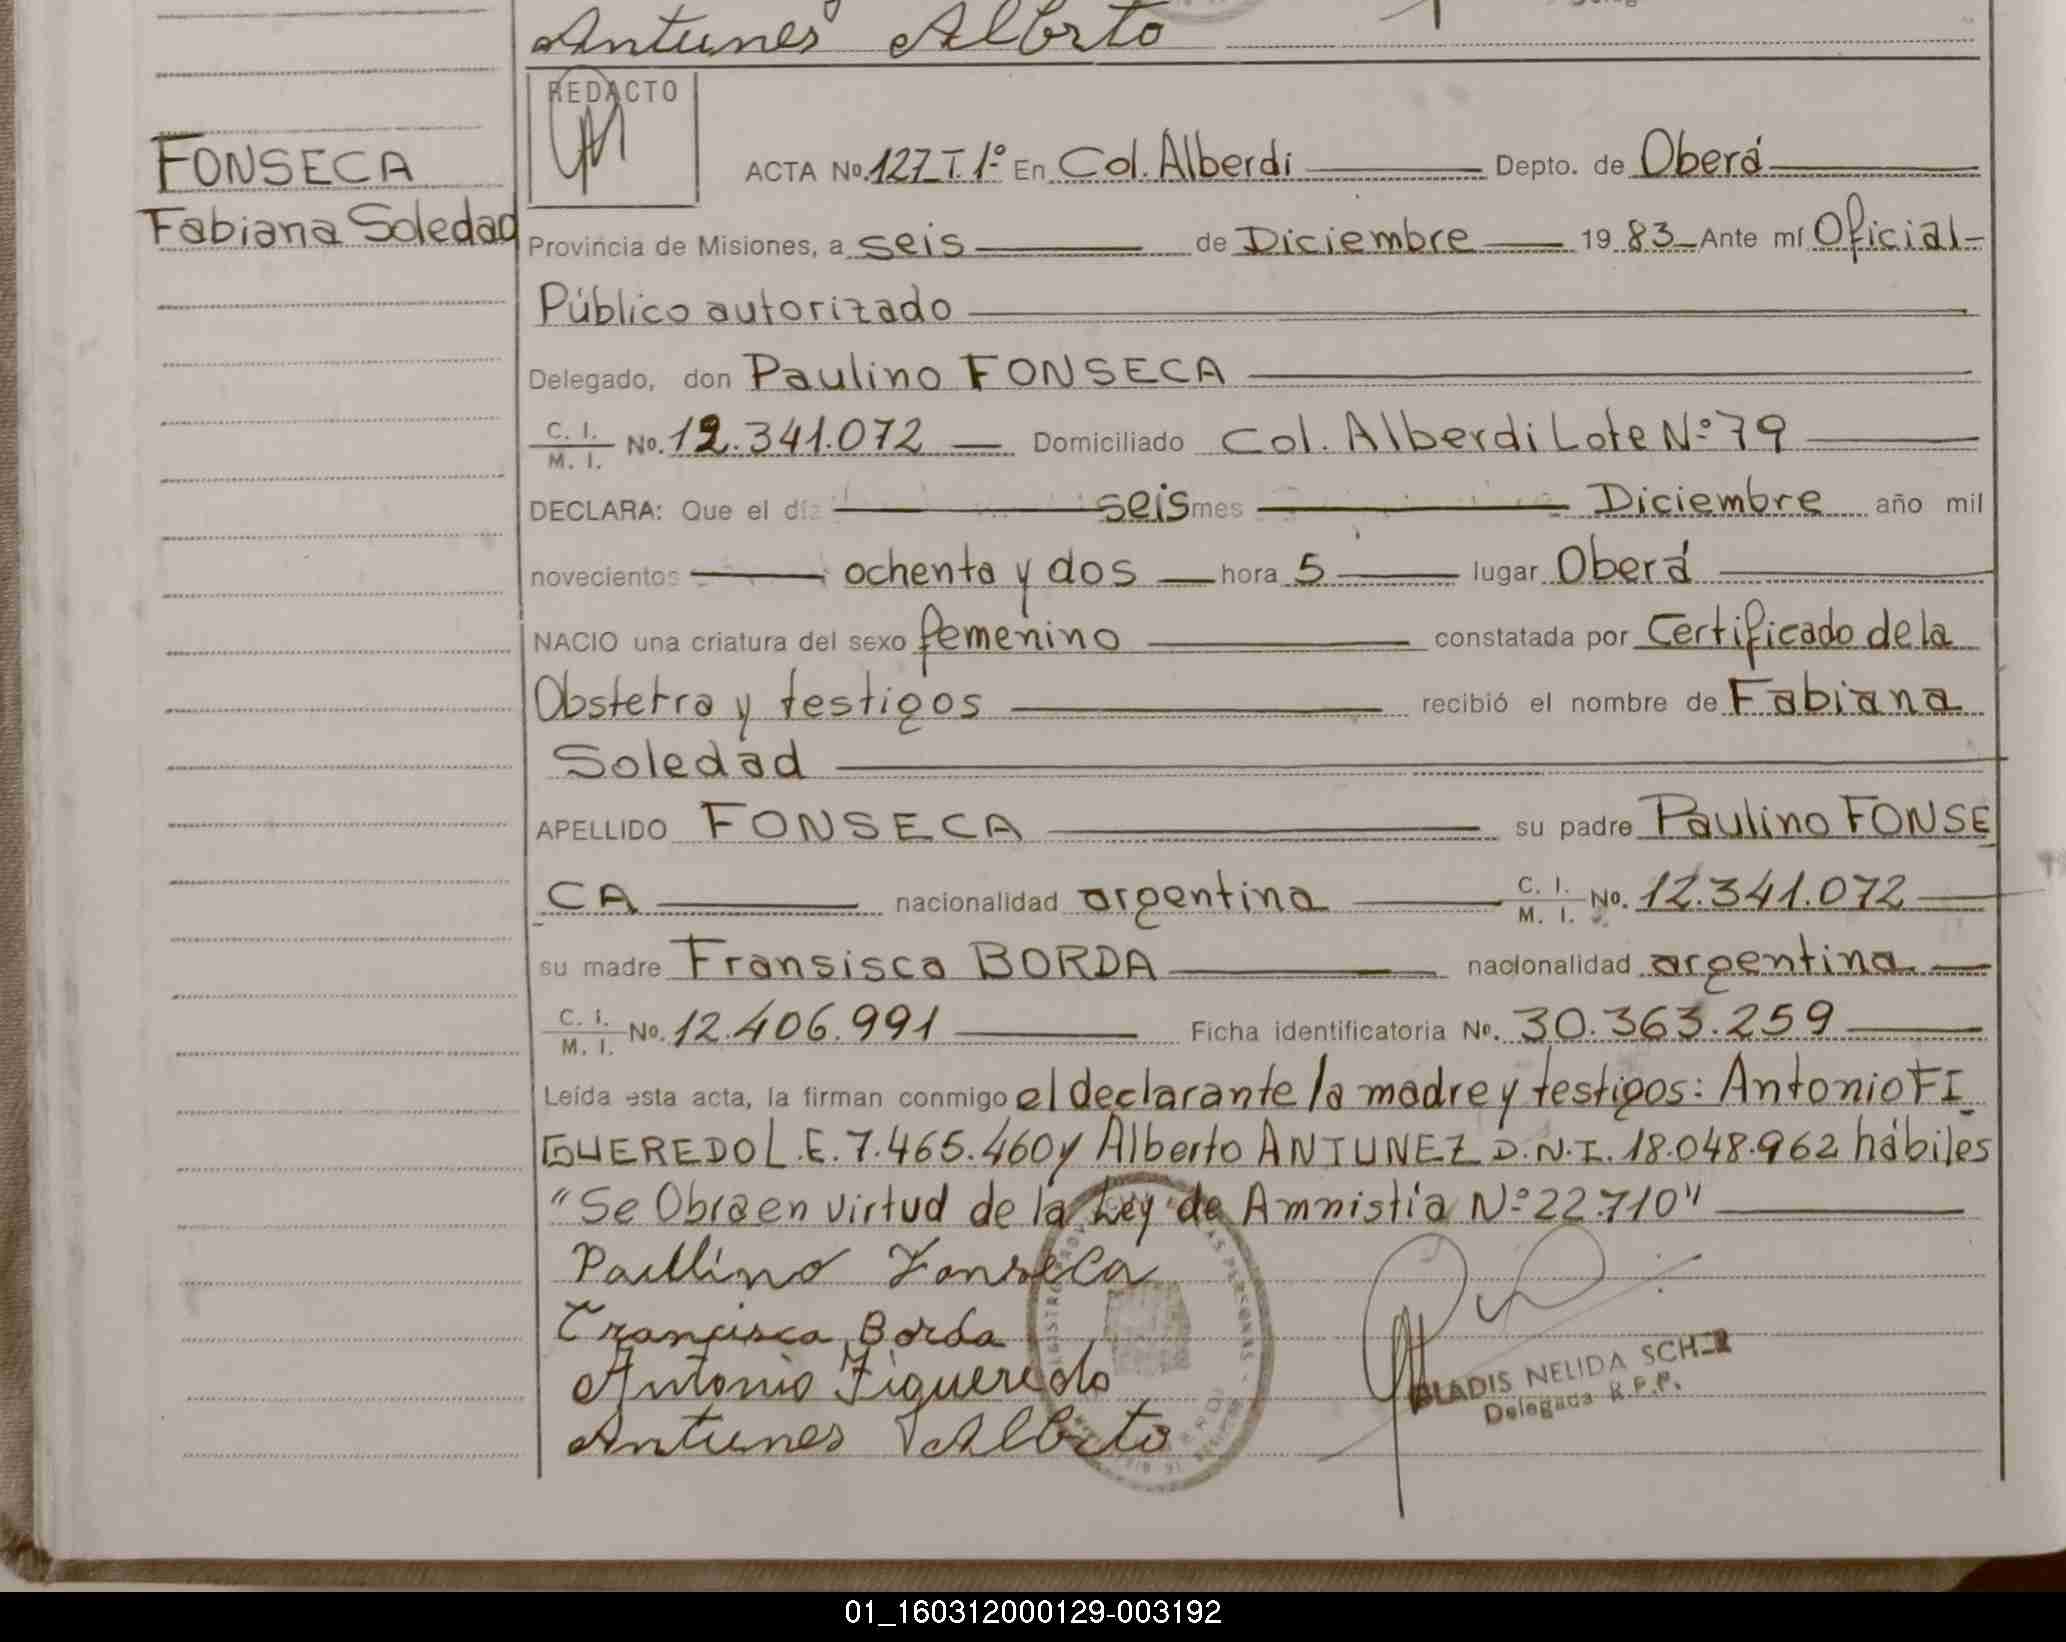 Antunes Alberto
REDACTO
FONSECA
Fabiana Soledad
ACTA No. 127 T. 1º En Col. Alberdi Depto. de Oberá
Provincia de Misiones, a seis de Diciembre 1983 Ante mí Oficial
Público autorizado
Delegado, don Paulino FONSECA
C. I. M. I. No. 12.341.072 Domiciliado Col. Alberdi Lote Nº 79
DECLARA: Que el día seis mes Diciembre año mil
novecientos ochenta y dos hora 5 lugar Oberá
NACIO una criatura del sexo femenino constatada por Certificado de la
Obstetra y testigos recibió el nombre de Fabiana
Soledad
APELLIDO FONSECA su padre Paulino FONSE
CA nacionalidad argentina C. I. M. I. No. 12.341.072
su madre Fransisca BORDA nacionalidad argentina
C. I. M. I. No. 12.406.991 Ficha identificatoria No. 30.363.259
Leída esta acta, la firman conmigo el declarante la madre y testigos: Antonio FI
GUEREDO L.E. 7.465.460 y Alberto ANTUNEZ D.N.I. 18.048.962 hábiles
"Se Obra en virtud de la Ley de Amnistía Nº 22.710"
Paulino Fonseca
Francisca Borda
Antonio Figueredo
Antunes Alberto
GLADIS NELIDA
Delegada R.P.P.
01_160312000129-003192